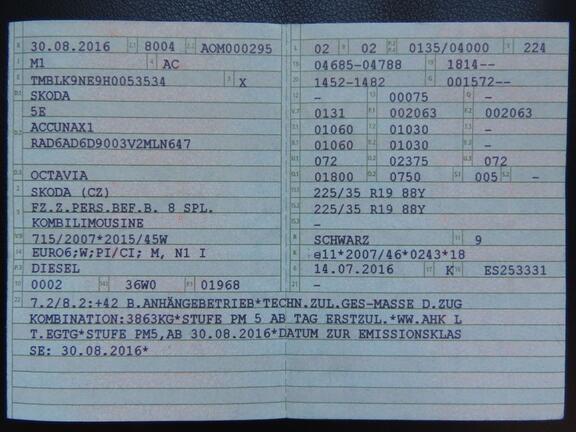 B 30.08.2016 2.1 8004 2.2 AOM000295
J M1 4 AC
E TMBLK9NE9H0053534 3 X
D.1 SKODA
5E
D.2 ACCUNAX1
RAD6AD6D9003V2MLN647
D.3 OCTAVIA
2 SKODA (CZ)
5 FZ.Z.PERS.BEF.B. 8 SPL.
KOMBILIMOUSINE
V.9 715/2007*2015/45W
14 EURO6;W;PI/CI; M, N1 I
P.3 DIESEL
10 0002 14.1 36W0 P.1 01968
L 02 9 02 P.2 P.4 0135/04000 T 224
18 04685-04788 19 1814--
20 1452-1482 G 001572--
12 - 13 00075 Q -
V.7 0131 F.1 002063 F.2 002063
7.1 01060 7.2 01030 7.3 -
8.1 01060 8.2 01030 8.3 -
U.1 072 U.2 02375 U.3 072
O.1 01800 O.2 0750 S.1 005 S.2 -
15.1 225/35 R19 88Y
15.2 225/35 R19 88Y
15.3 -
R SCHWARZ 11 9
K e11*2007/46*0243*18
6 14.07.2016 17 K 16 ES253331
21 -
22 7.2/8.2:+42 B.ANHÄNGEBETRIEB*TECHN.ZUL.GES-MASSE D.ZUG
KOMBINATION:3863KG*STUFE PM 5 AB TAG ERSTZUL.*WW.AHK L
T.EGTG*STUFE PM5,AB 30.08.2016*DATUM ZUR EMISSIONSKLAS
SE: 30.08.2016*